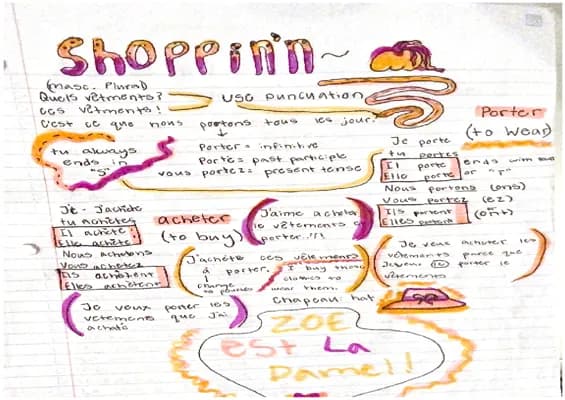 Shoppin'n ~
(masc. Plural)
Quels vêtments?
ces vêtments!
use puncuation
C'est ce que nous portons tous les jour.
tu always
ends in
"s"
Porter = infinitive
Porté = past participle
vous portez = present tense
Porter
(to wear)
Je porte
tu portes
Il porte
Elle porte
ends with
or
Nous portons (ons)
Vous portez (ez)
Ils portent
Elles portent
(ent)
Je - J'achète
tu achètes
Il achète
Elle achète
Nous achetons
Vous achetez
Ils achètent
Elles achètent
acheter
(to buy)
(J'aime acheter
le vêtements et
porter..!!)
(J'achète ces vêtements
à porter.
I buy those
classics and
wear them.
change
Chapeau: hat
(Je veux acheter les
vêtments parce que
Je veux porter le
vêtments
(Je veux porter les
vetements que j'ai
acheté
ZOE
est La
Dame!!